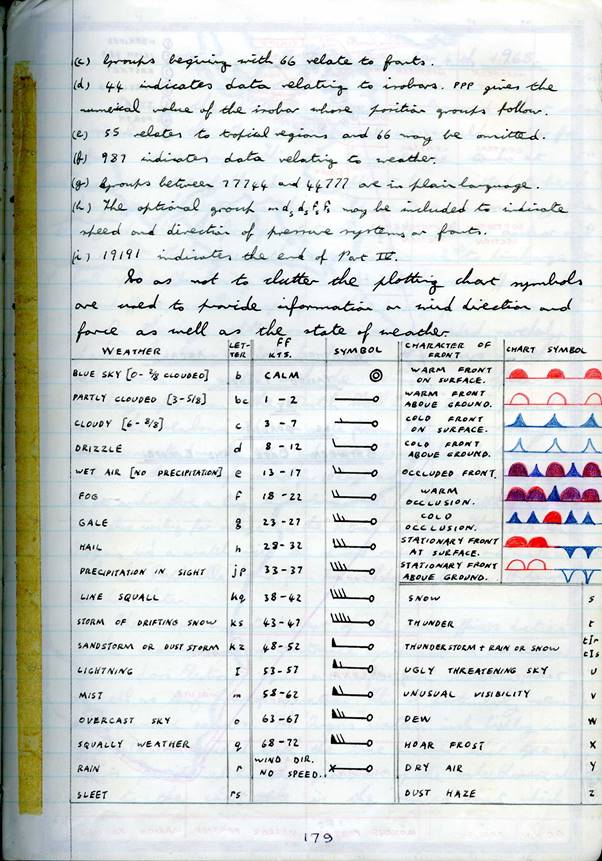 (c) Groups begining with 66 relate to fronts.
(d) 44 indicates data relating to isobars. PPP gives the
numerical value of the isobar whose position groups follow.
(e) 55 relates to topical regions and 66 may be omitted.
(f) 987 indicates data relating to weather.
(g) Groups between 77744 and 44777 are in plain language.
(h) The optional group may be included to indicate
speed and direction of pressure systems or fronts.
(i) 19191 indicates the end of Part IV.
So as not to clutter the plotting chart symbols
are used to provide information on wind direction and
force as well as the state of weather.
WEATHER LET-TER ff KTS. SYMBOL CHARACTER OF FRONT CHART SYMBOL
BLUE SKY [0-2/8 CLOUDED] b CALM WARM FRONT ON SURFACE.
PARTLY CLOUDED [3-5/8] bc 1-2 WARM FRONT ABOVE GROUND.
CLOUDY [6-8/8] c 3-7 COLD FRONT ON SURFACE.
DRIZZLE d 8-12 COLD FRONT ABOVE GROUND.
WET AIR [NO PRECIPITATION] e 13-17 OCCLUDED FRONT.
FOG f 18-22 WARM OCCLUSION.
GALE g 23-27 COLD OCCLUSION.
HAIL h 28-32 STATIONARY FRONT AT SURFACE.
PRECIPITATION IN SIGHT jp 33-37 STATIONARY FRONT ABOVE GROUND.
LINE SQUALL kq 38-42 SNOW s
STORM OF DRIFTING SNOW ks 43-47 THUNDER t
SANDSTORM OR DUST STORM kz 48-52 THUNDERSTORM + RAIN OR SNOW tlr tls
LIGHTNING l 53-57 UGLY THREATENING SKY u
MIST m 58-62 UNUSUAL VISIBILITY v
OVERCAST SKY o 63-67 DEW w
SQUALLY WEATHER q 68-72 HOAR FROST x
RAIN r WIND DIR. NO SPEED. DRY AIR y
SLEET rs DUST HAZE z
179